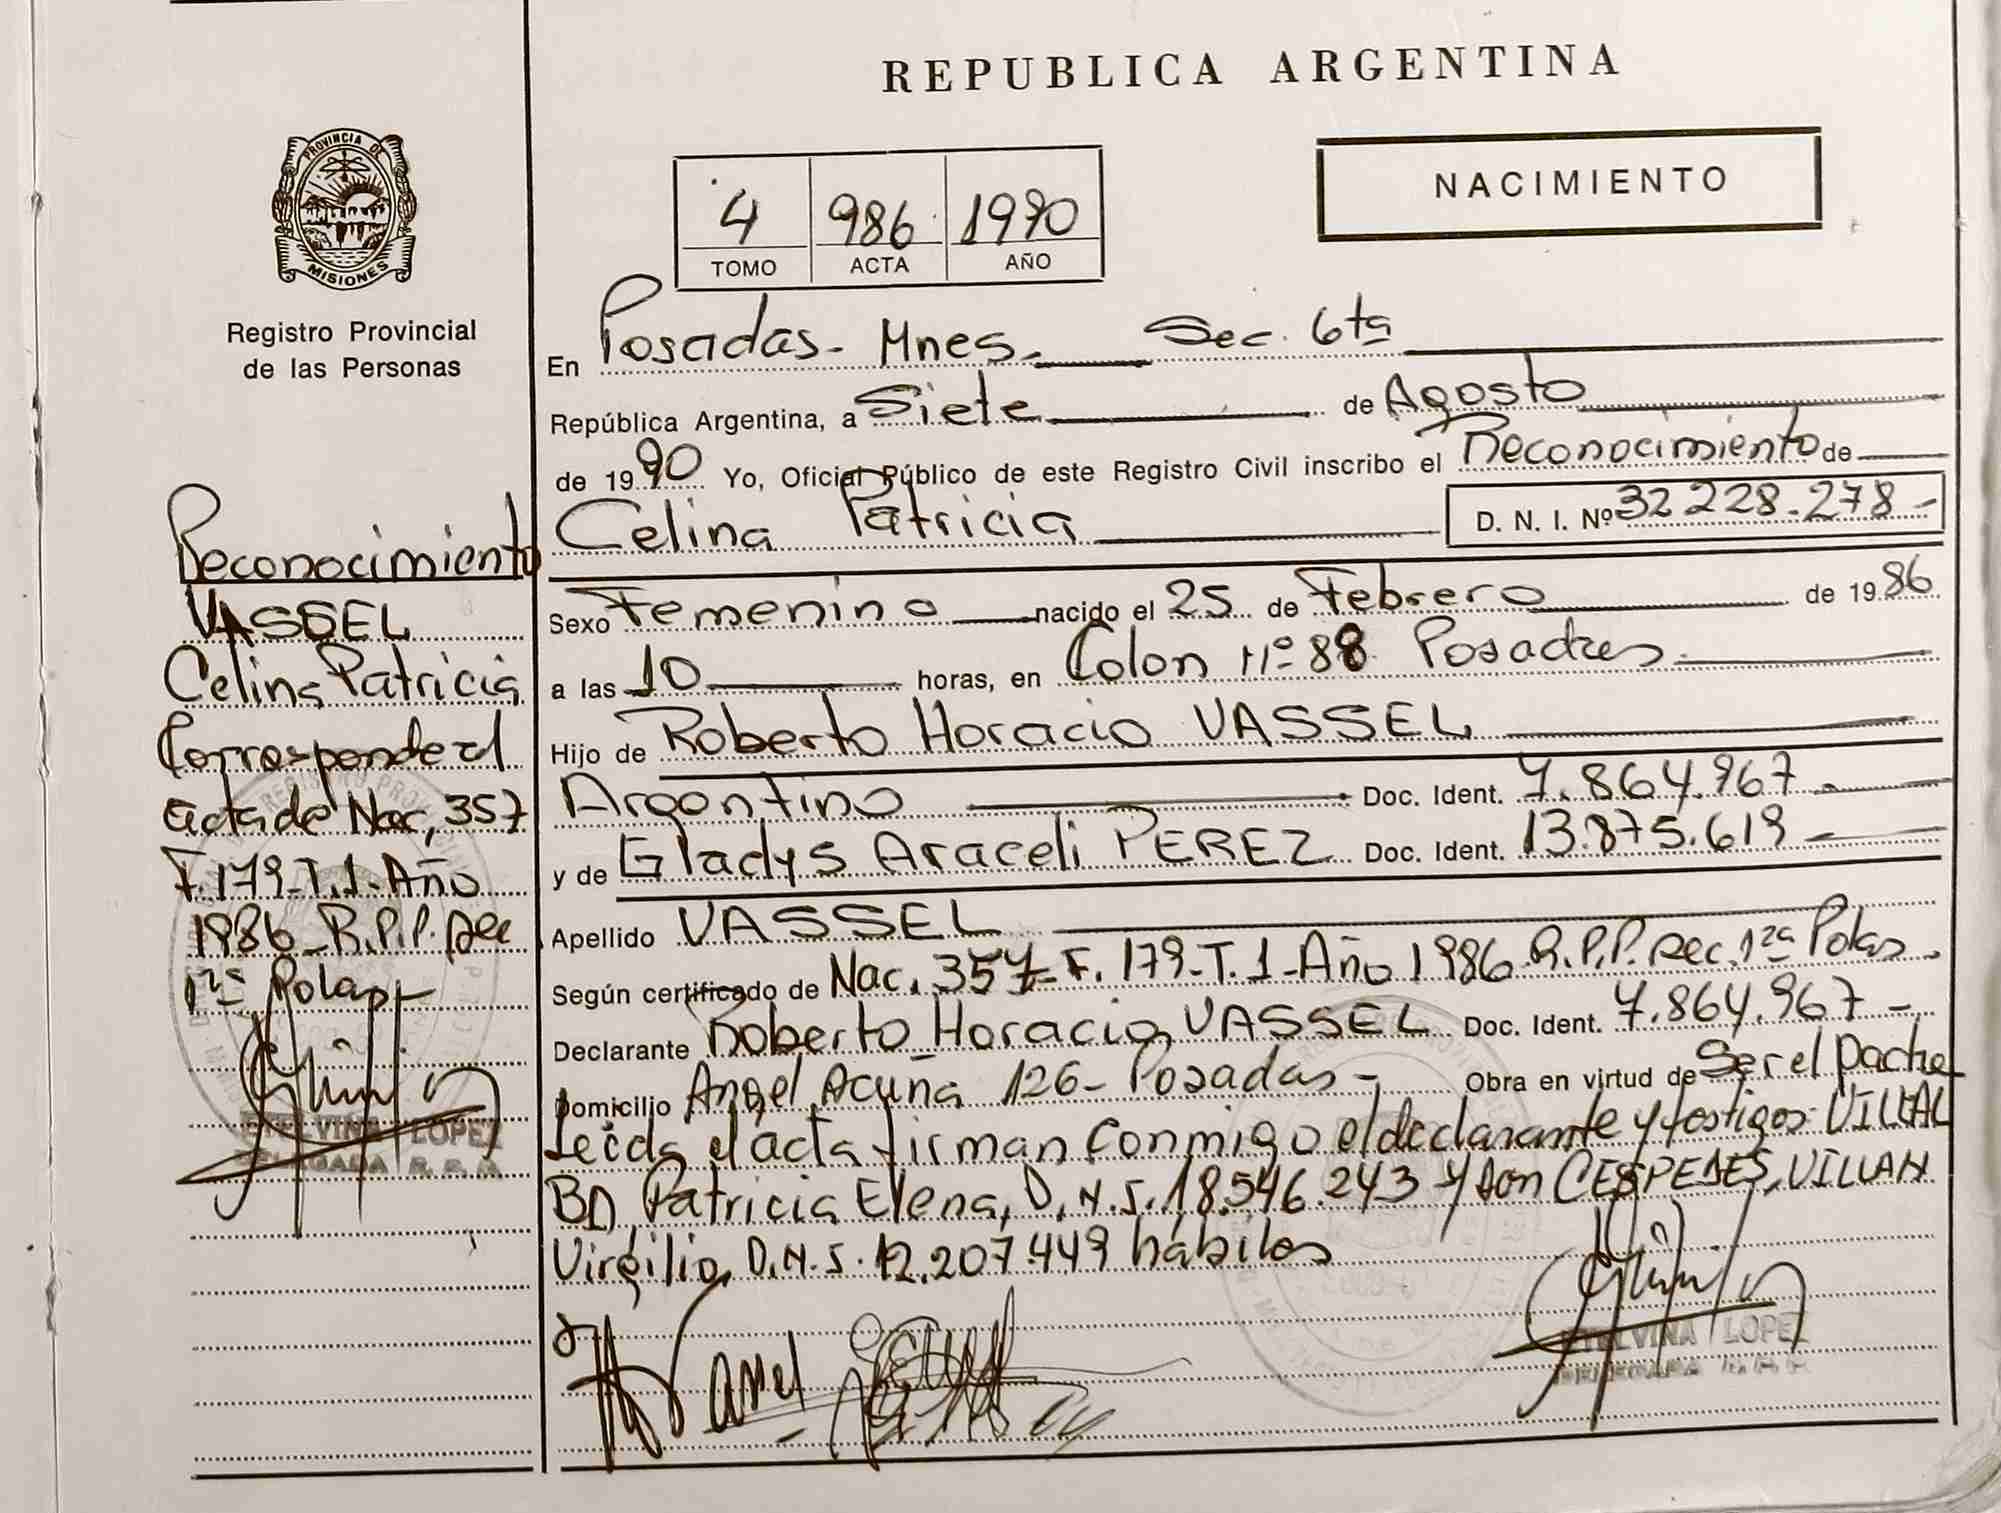 REPUBLICA ARGENTINA
PROVINCIA DE
MISIONES
Registro Provincial
de las Personas
4 986 1990
TOMO ACTA AÑO
NACIMIENTO
En Posadas - Mnes - Sec. 6ta
República Argentina, a Siete de Agosto
de 1990 Yo, Oficial Público de este Registro Civil inscribo el Reconocimiento de
Celina Patricia D. N. I. Nº 32 228.278-
Sexo Femenino nacido el 25 de Febrero de 1986
a las 10 horas, en Colon Nº 88 Posadas
Hijo de Roberto Horacio VASSEL
Argentino Doc. Ident. 7.864.967
y de Gladys Araceli PEREZ Doc. Ident. 13.875.619
Apellido VASSEL
Según certificado de Nac. 357-F. 179-T. 1-Año 1986 R.P.P. sec. 1ra Pdas
Declarante Roberto Horacio VASSEL Doc. Ident. 7.864.967
Domicilio Angel Acuña 126 - Posadas - Obra en virtud de Ser el padre
Leida el acta firman conmigo el declarante y testigos VILLAL
BA Patricia Elena, D.N.I. 18.546.243 y don CESPEDES, VILLAN
Virgilio, D.N.I. 12.207.449 hábiles
Reconocimiento
VASSEL
Celina Patricia
Corresponde al
acta de Nac, 357
F. 179-T. 1-Año
1986-R.P.P. sec
1ra Pdas
ETELVINA LOPEZ
DELEGADA R.P.P.
ETELVINA LOPEZ
DELEGADA R.P.P.